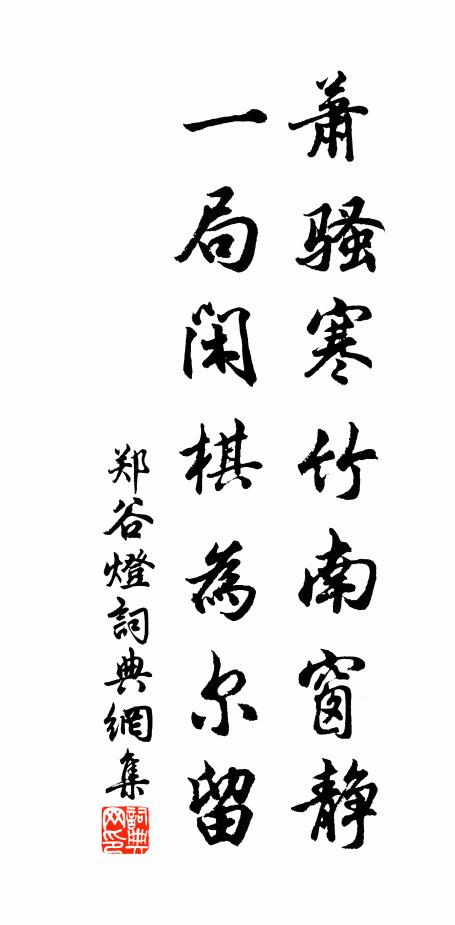 萧骚寒竹南窗静
一局闲棋為尔留
郑谷燈詞典網集
詞典网印